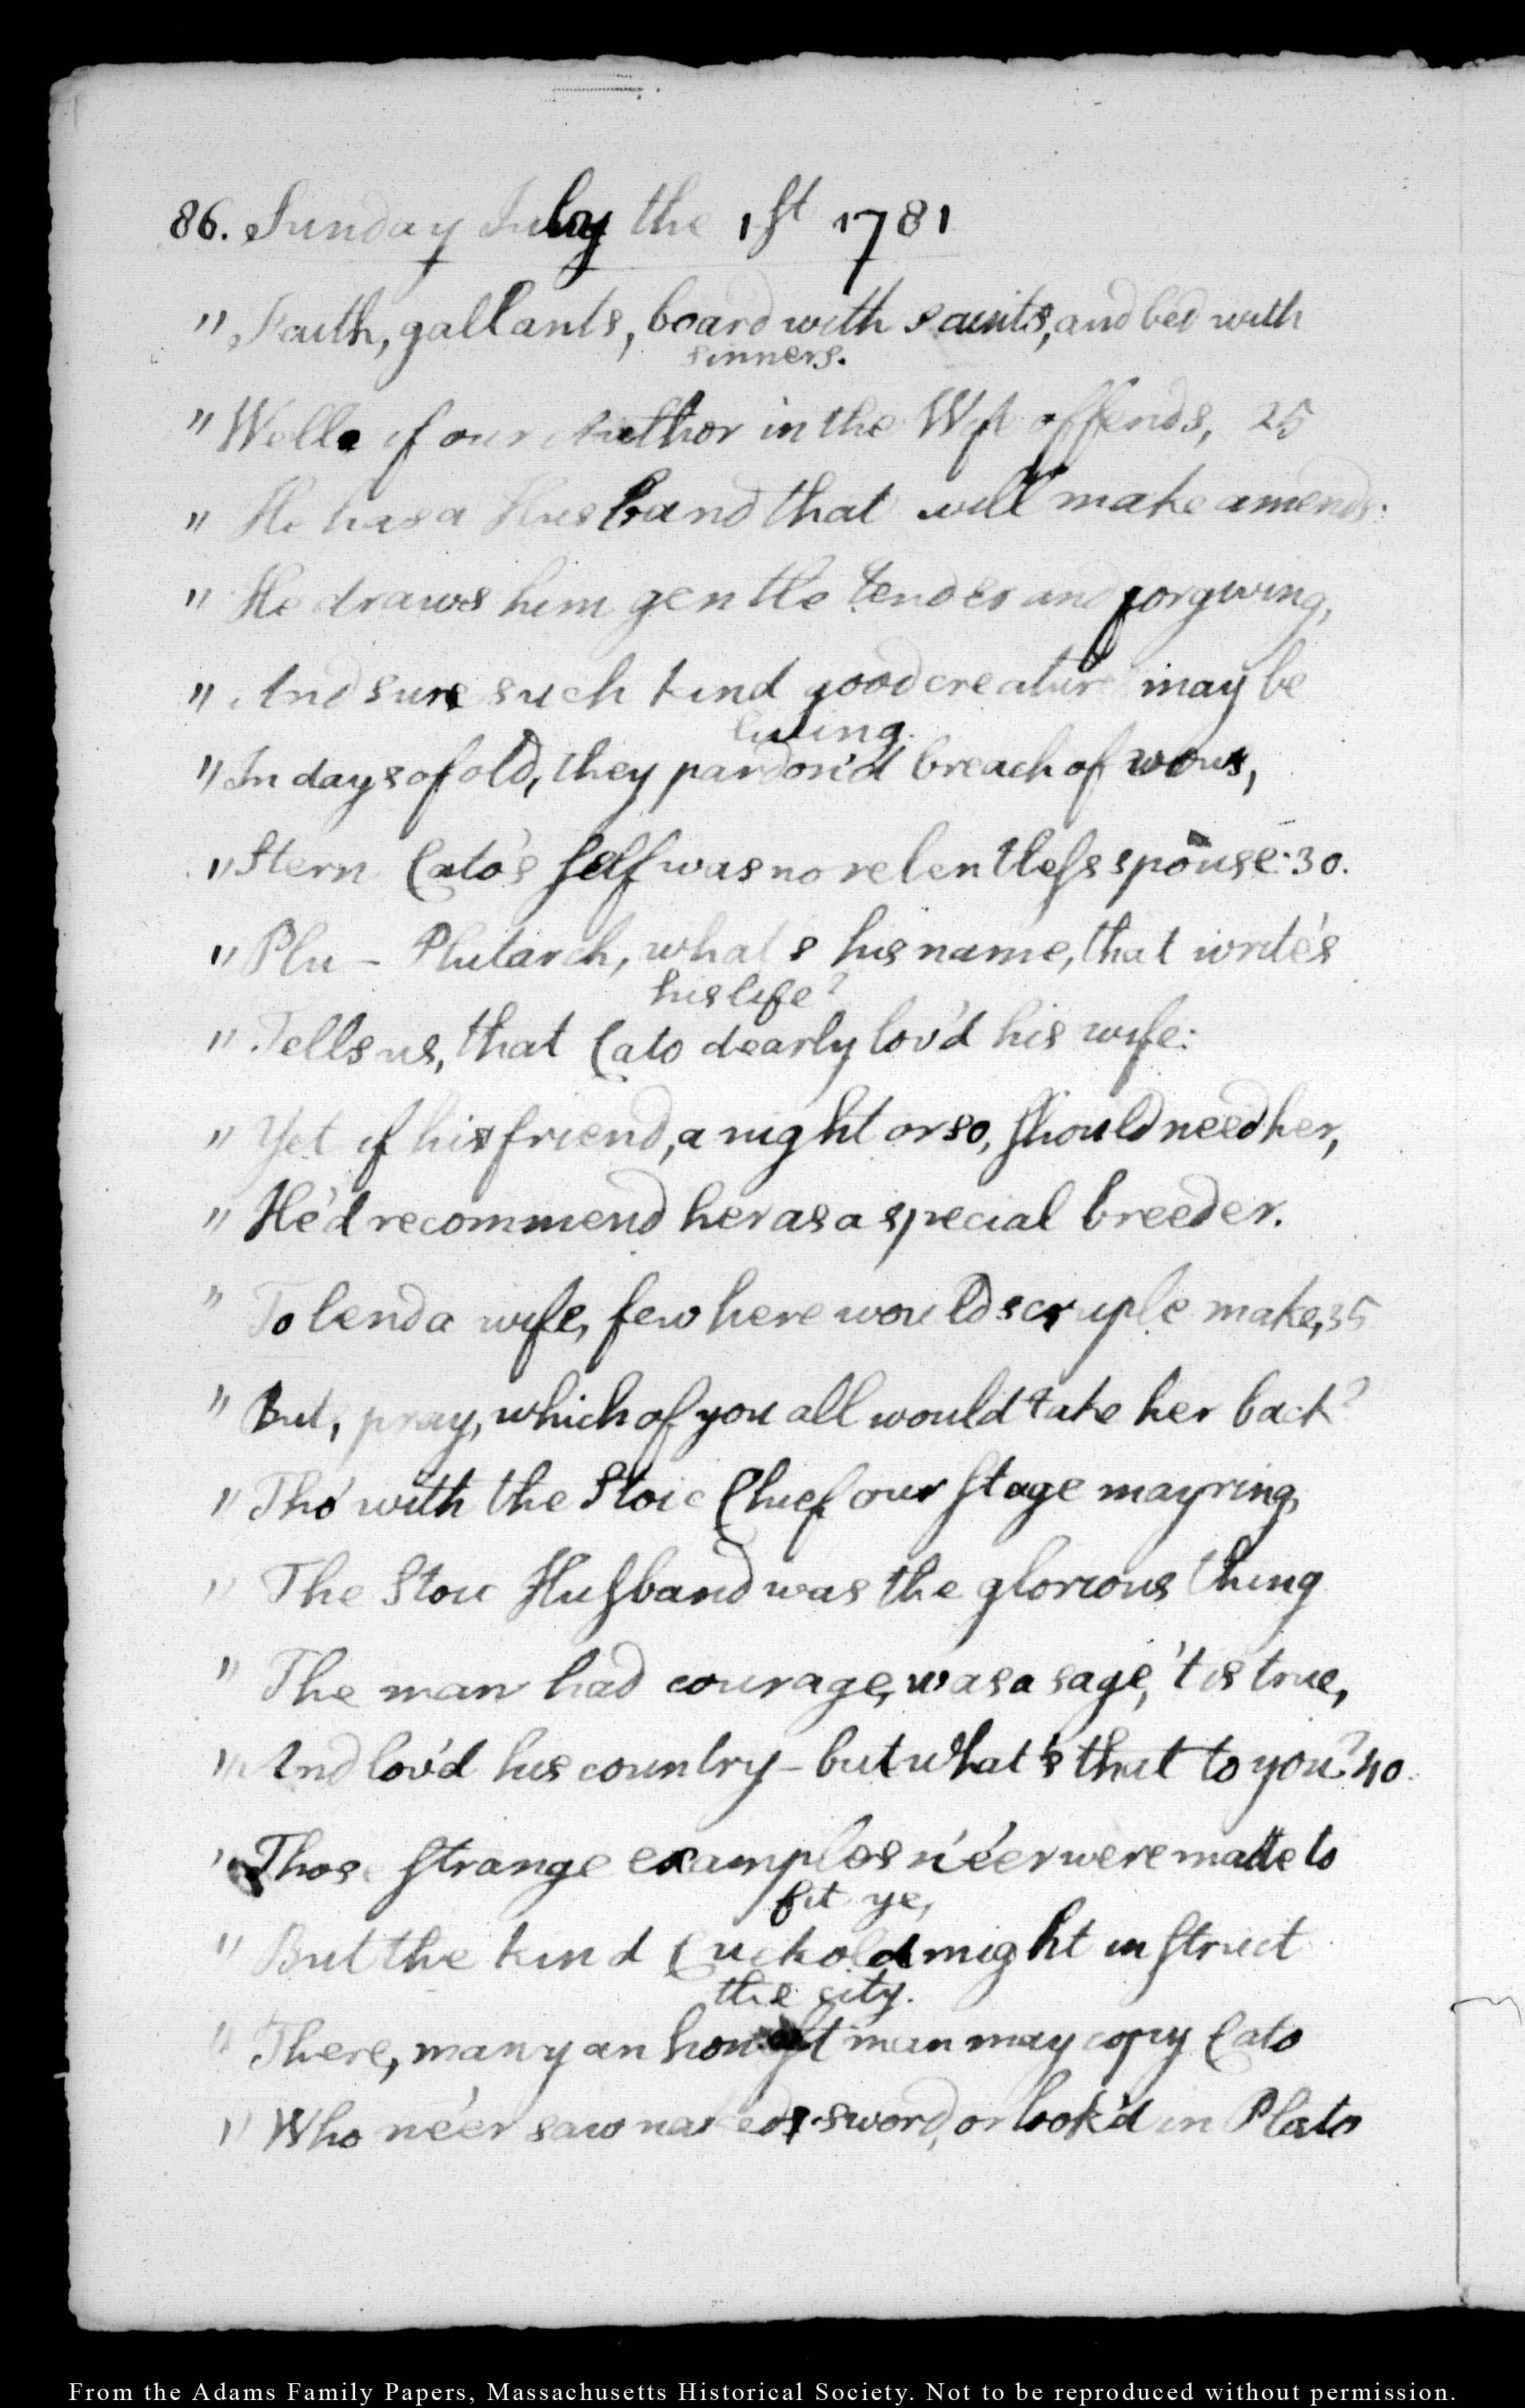 86. Sunday July the 1st 1781
" Faith, gallants, board with saints, and bed with
sinners.
" Well if our Author in the Wife offends, 25
" He has a Husband that will make amends.
" He draws him gentle tender and forgiving,
" And sure such kind good creature may be
living.
" In days of old, they pardon'd breach of vows,
" Stern Cato's self was no relentless spouse. 30.
" Plu - Plutarch, what's his name, that write's
his life?
" Tells us, that Cato dearly lov'd his wife:
" Yet if his friend, a night or so, should need her,
" He'd recommend her as a special breeder.
" To lend a wife, few here would scruple make, 35
" But, pray, which of you all would take her back?
" Tho' with the Stoic Chief our stage may ring,
" The Stoic Husband was the glorious thing
" The man had courage, was a sage, 't is true,
" And lov'd his country - but what's that to you? 40.
" Those strange examples n'e'er were made to
fit ye,
" But the kind Cuckold might instruct
the city.
" There, many an honest man may copy Cato
" Who ne'er saw naked sword, or look'd in Plato
From the Adams Family Papers, Massachusetts Historical Society. Not to be reproduced without permission.